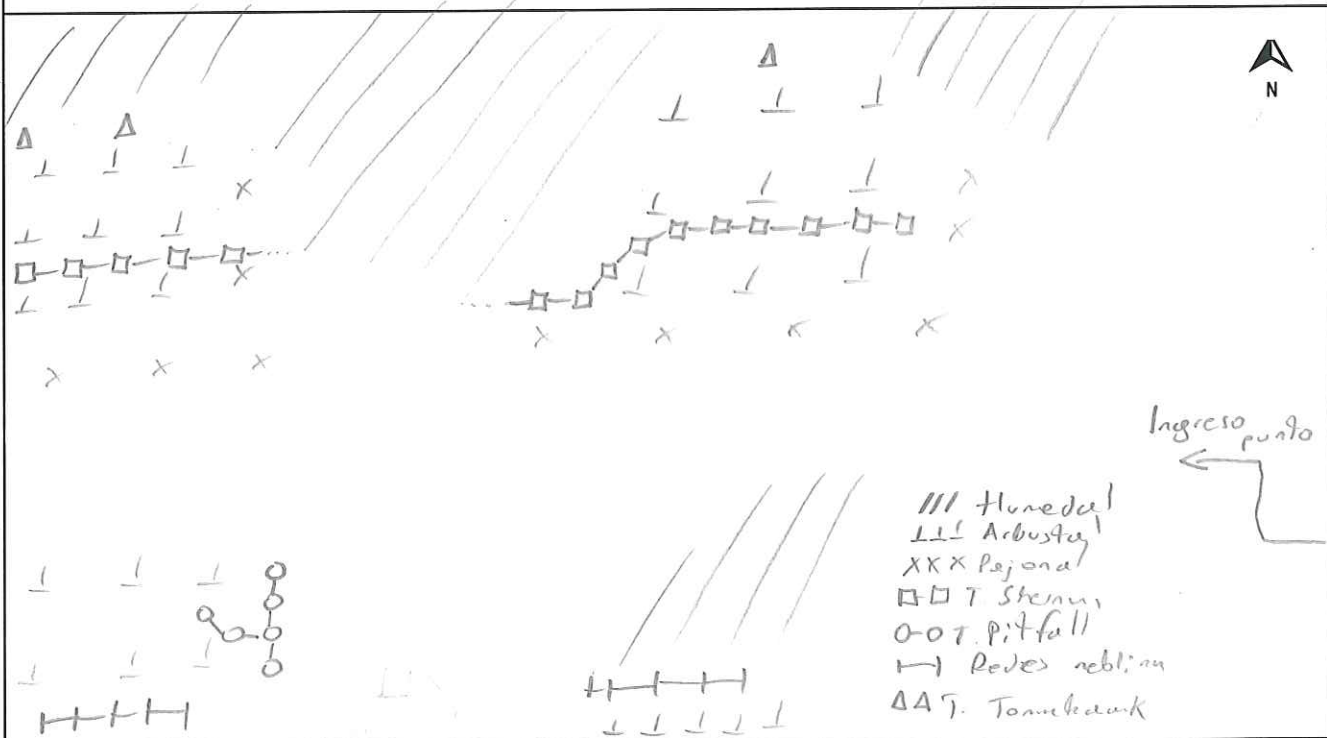 N
Ingreso punto
/// Humedal
⊥⊥⊥ Arbustal
XXX Pajonal
□-□ T.
O-O T. Pitfall
|-| Redes neblina
ΔΔ T.